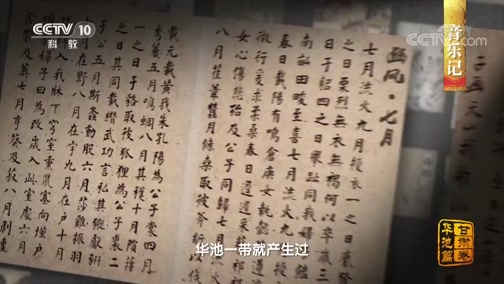 CCTV 10
科教
CCTV.com
音乐记
甘肃卷
华池篇
豳风·七月
七月流火九月授衣一之日觱發
之日栗烈無衣無褐何以卒歲三
之日于耜四之日舉趾同我婦
南畝田畯至喜七月流火九月授
春日載陽有鳴倉庚女執懿筐遵
微行爰求柔桑春日遲遲采蘩
女心傷悲殆及公子同歸七月
八月萑葦蠶月條桑取彼斧斨以伐
載玄載黃我朱孔陽為公子裳四月
秀葽五月鳴蜩八月其穫十月隕蘀
一之日于貉取彼狐狸為公子裘二
之日其同載纘武功言私其豵獻豜
于公五月斯螽動股六月莎雞振羽
月在野八月在宇九月在戶十月
入我牀下穹窒熏鼠塞向墐戶
婦子曰為改歲入此室處六月
及薁七月亨葵及菽八月剝
华池一带就产生过